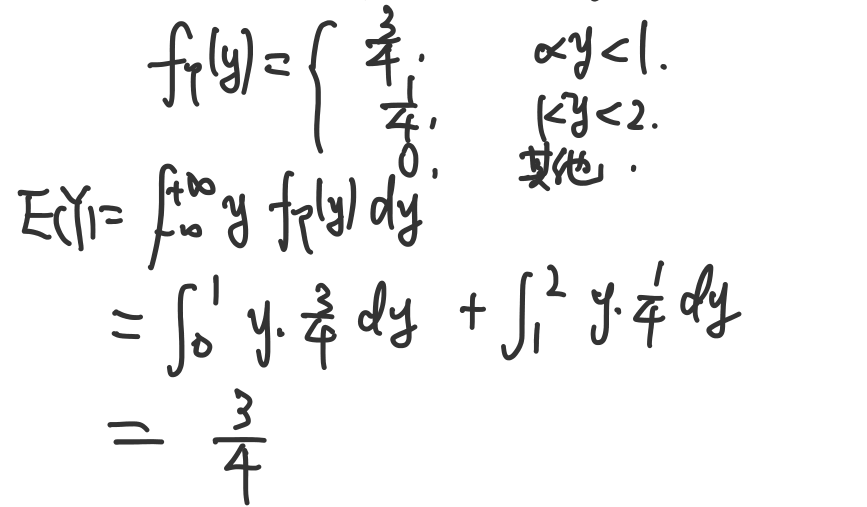 fY(y) = { 3/4, 0<y<1.
1/4, 1<y<2.
0, 其他.
E(Y) = ∫_{-∞}^{+∞} y fY(y) dy
= ∫_0^1 y · 3/4 dy + ∫_1^2 y · 1/4 dy
= 3/4